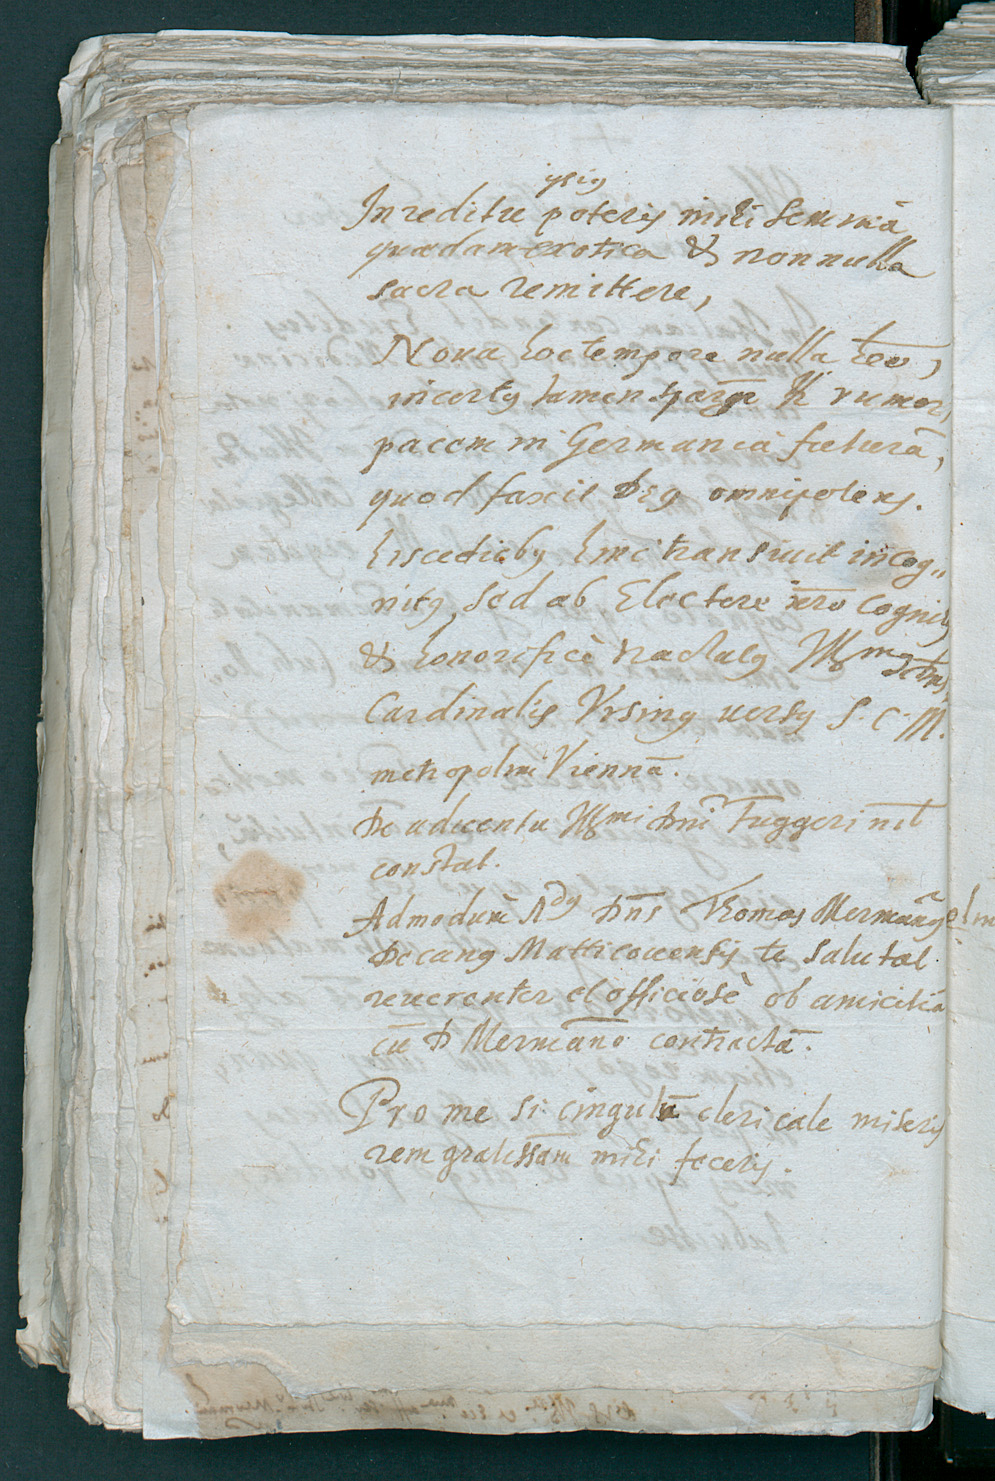 ipsis
In reditu poteris mihi semina
quædam exotica & nonnulla
sacra remittere,
Noua hoc tempore nulla
incertus tamen rumor,
pacem in Germania futurā,
quod faxit DEus omnipotens.
hisce diebus hinc transiuit incog„
nitus, sed ab Electore vero cognitus
& honorificè tractatus Illmus
Cardinalis Vrsinus uersus S. C. M.
metropolim Viennā.
De aduentu Illmi Dni Fuggeri nil
constat.
Admodum Rdus Dns Thomas Mermanus
Decanus Matticouensis te salutat
reuerenter et officiosè ob amicitiā
cū D Mermano contractā.
Pro me si cingulū clericale miseris
rem gratissam mihi feceris.